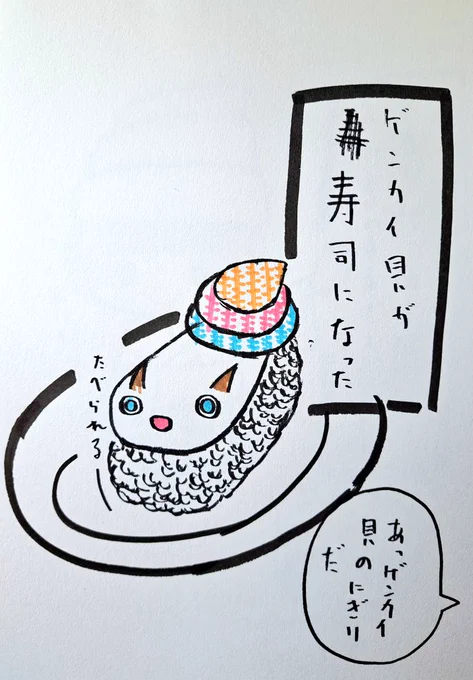 ゲンカイ貝が
寿司になった
たべられるー
あっゲンカイ
貝のにぎり
だ